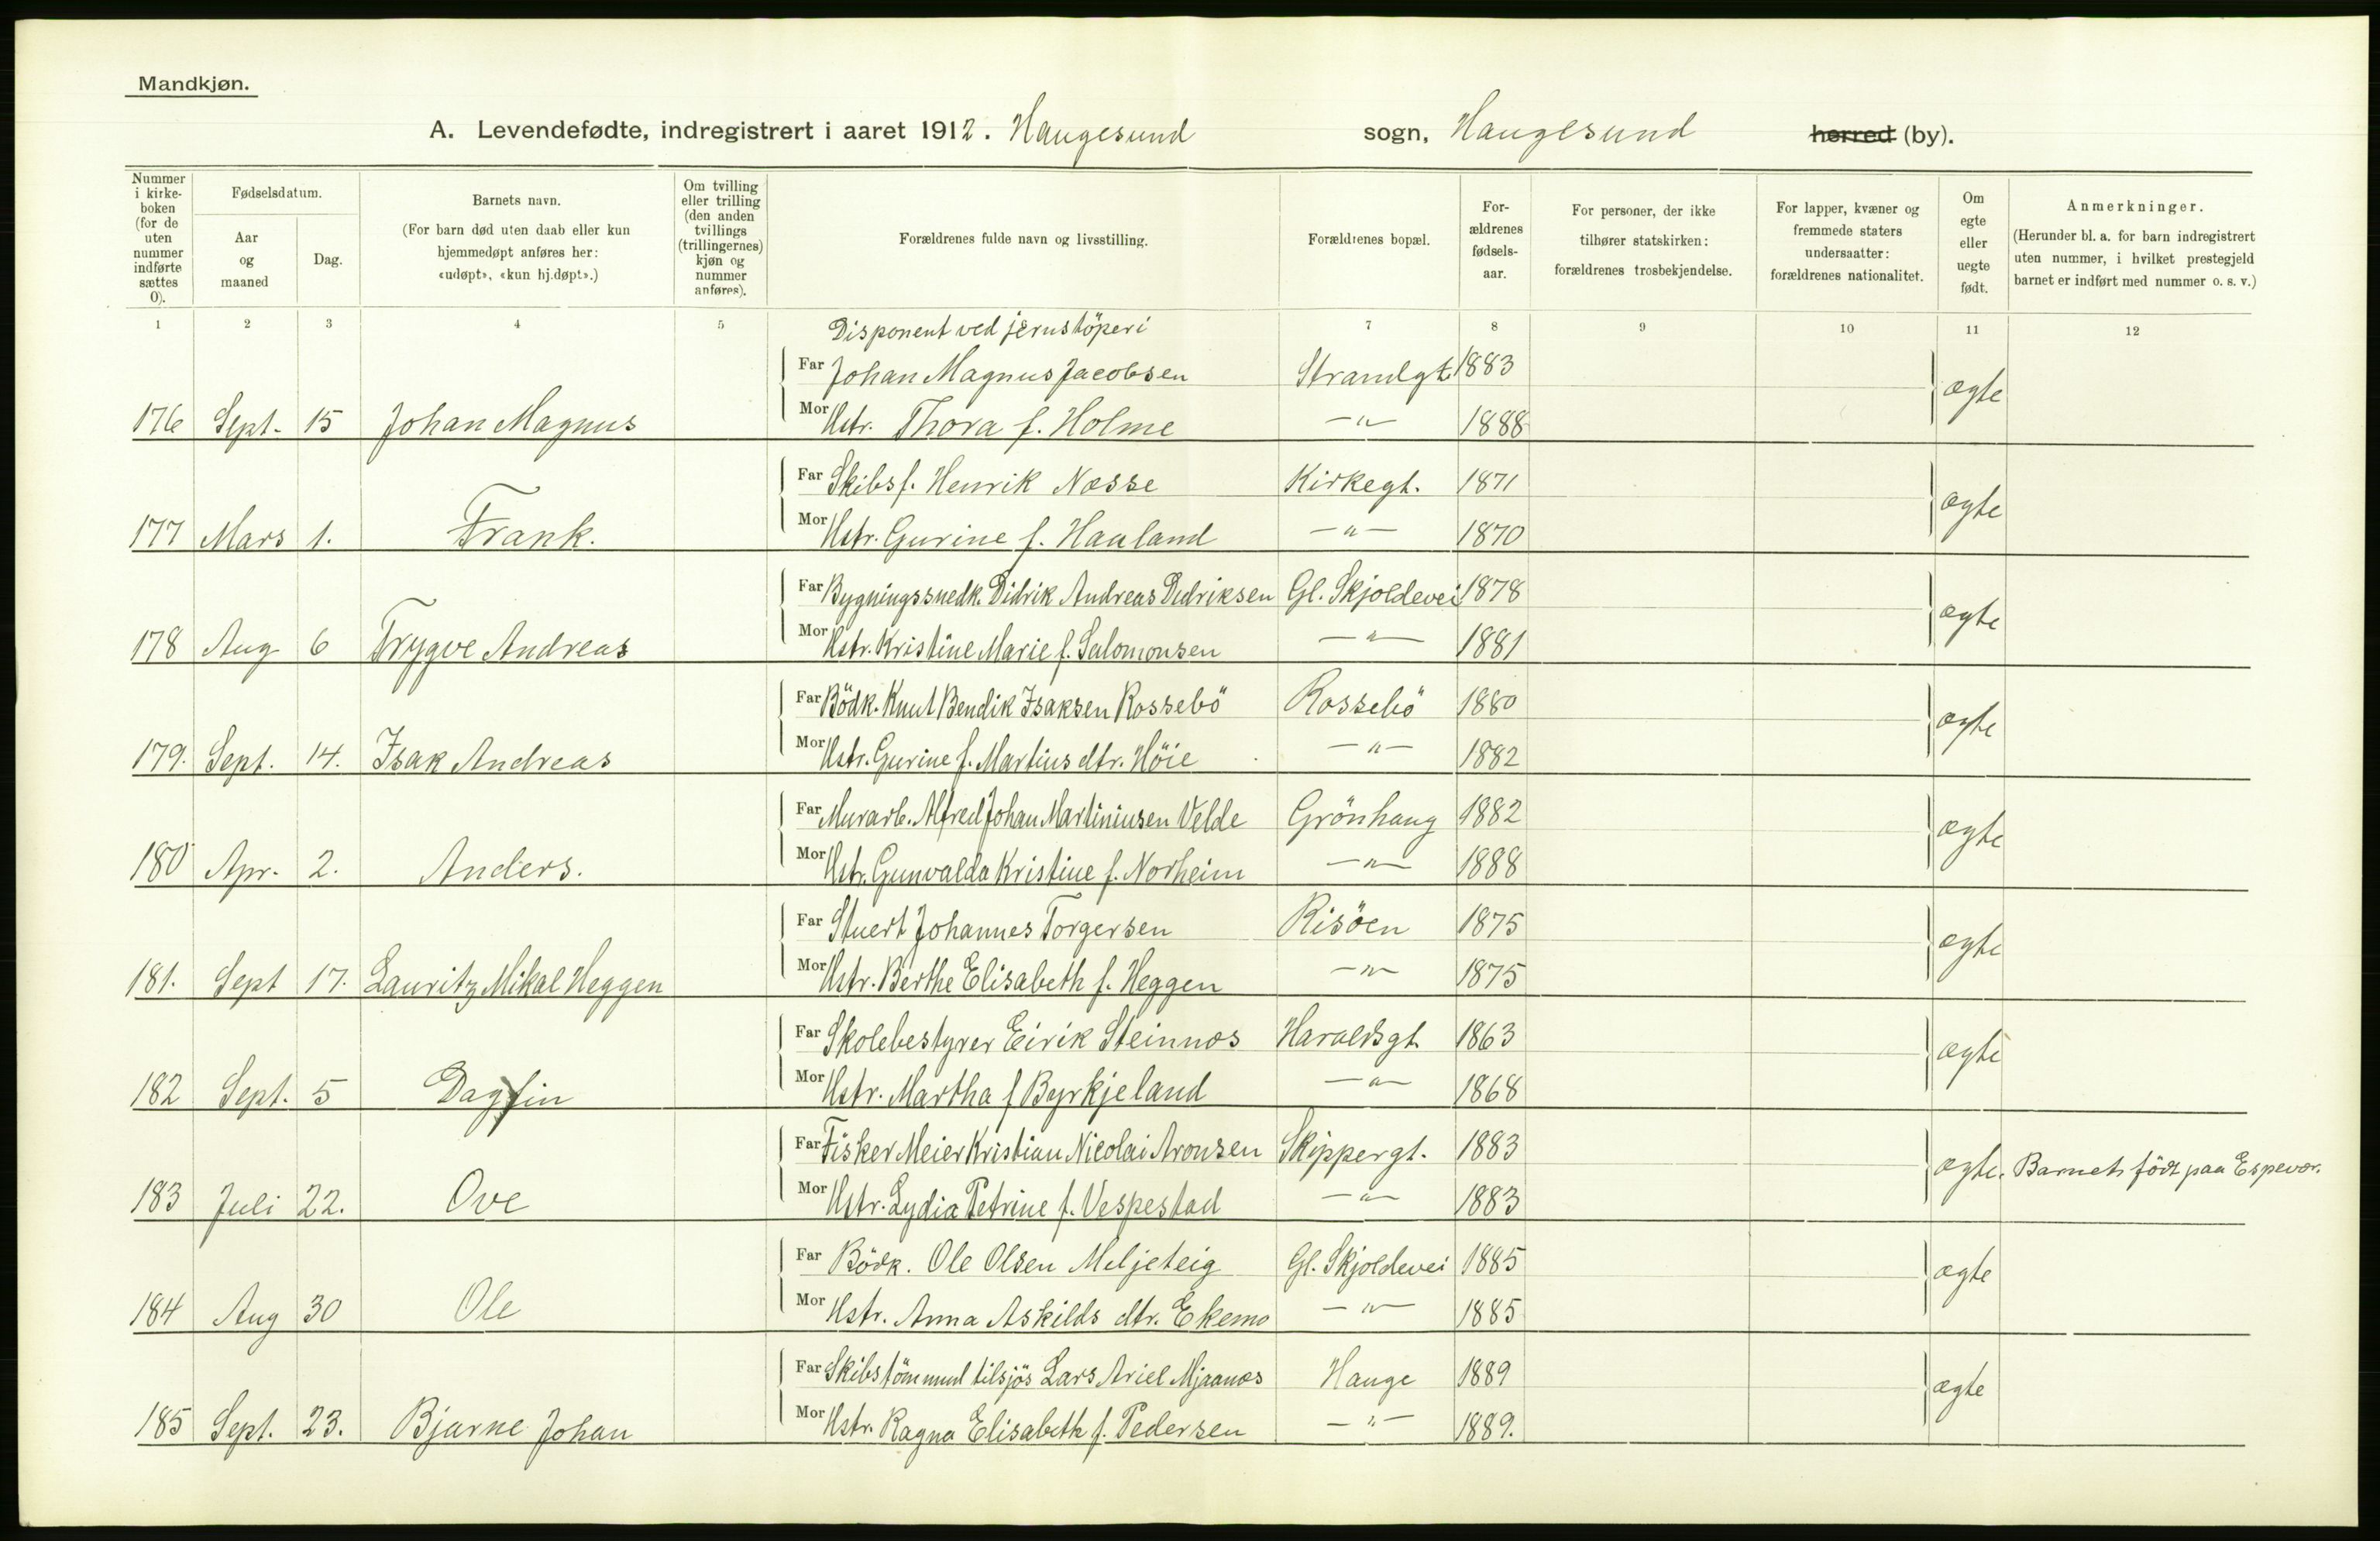 Mandkjøn.
A. Levendefødte, indregistrert i aaret 1912. Haugesund sogn, Haugesund herred (by).
Nummer i kirkeboken (for de uten nummer indførte sættes 0).
Fødselsdatum.
Aar og maaned
Dag.
Barnets navn.
(For barn død uten daab eller kun hjemmedøpt anføres her: «udøpt», «kun hj.døpt».)
Om tvilling eller trilling (den anden tvillings (trillingernes) kjøn og nummer anføres).
Forældrenes fulde navn og livsstilling.
Forældrenes bopæl.
Forældrenes fødselsaar.
For personer, der ikke tilhører statskirken: forældrenes trosbekjendelse.
For lapper, kvæner og fremmede staters undersaatter: forældrenes nationalitet.
Om egte eller uegte født.
Anmerkninger.
(Herunder bl. a. for barn indregistrert uten nummer, i hvilket prestegjeld barnet er indført med nummer o. s. v.)
1 2 3 4 5 7 8 9 10 11 12
Disponent ved jernstöperi
Far Johan Magnus Jacobsen Strandgt. 1883 ægte
176 Sept. 15 Johan Magnus Mor Hstr. Thora f. Holme —"— 1888
Far Skibsf. Henrik Næsse Kirkegt. 1871 ægte
177 Mars 1. Frank. Mor Hstr. Gurine f. Haaland —"— 1870
Far Bygningssnedk. Didrik Andreas Didriksen Gl. Skjoldevei 1878 ægte
178 Aug 6 Trygve Andreas Mor Hstr. Kristine Marie f. Salomonsen —"— 1881
Far Bödk. Knut Bendik Isaksen Rossebö Rossebö 1880 ægte
179. Sept. 14. Isak Andreas Mor Hstr. Gurine f. Martins dtr. Höie —"— 1882
Far Murarb. Alfred Johan Martiniusen Velde Grönhaug 1882 ægte
180 Apr. 2. Anders. Mor Hstr. Gunvalda Kristine f. Norheim —"— 1888
Far Stuert Johannes Torgersen Risöen 1875 ægte
181. Sept 17. Lauritz Mikal Heggen Mor Hstr. Berthe Elisabeth f. Heggen —"— 1875
Far Skolebestyrer Eirik Steinnæs Haraldsgt. 1863 ægte
182 Sept. 5 Dagfin Mor Hstr. Martha f Byrkjeland —"— 1868
Far Fisker Meier Kristian Nicolai Aronsen Skippergt. 1883 ægte. Barnet födt paa Espevær.
183 Juli 22. Ove Mor Hstr. Lydia Petrine f. Vespestad —"— 1883
Far Bödk. Ole Olsen Meljeteig Gl. Skjoldevei 1885 ægte
184 Aug 30 Ole Mor Hstr. Anna Askilds dtr. Ekemo —"— 1885
Far Skibstömmml tilsjös Lars Ariel Mjaanæs Hauge 1889 ægte
185 Sept. 23. Bjarne Johan Mor Hstr. Ragna Elisabeth f. Pedersen —"— 1889.